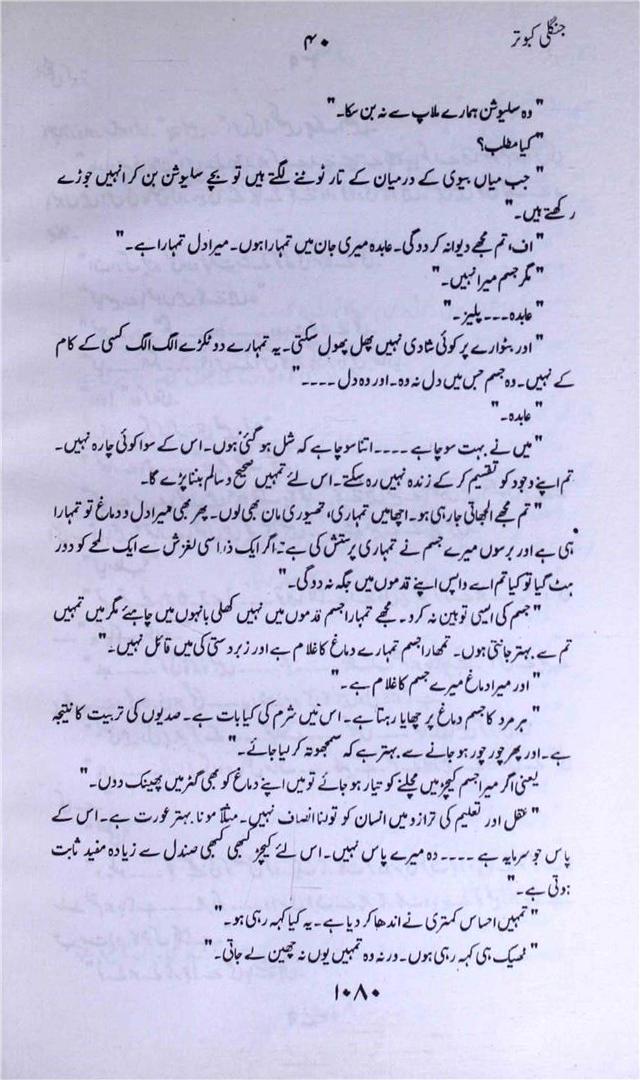 جنگلی کبوتر
۴۰
" وہ سلیوشن ہمارے ملاپ سے نہ بن سکا۔"
" کیا مطلب؟
" جب میاں بیوی کے درمیان کے تار ٹوٹنے لگتے ہیں تو بچے سلیوشن بن کر انہیں جوڑے
رکھتے ہیں۔"
" اف، تم مجھے دیوانہ کر دو گی۔ عابدہ میری جان میں تمہارا ہوں۔ میرا دل تمہارا ہے۔"
" مگر جسم میرا نہیں۔"
" عابدہ ۔۔۔ پلیز۔"
" اور بٹوارے پر کوئی شادی نہیں پھل پھول سکتی۔ یہ تمہارے دو ٹکڑے الگ الگ کسی کے کام
کے نہیں۔ وہ جسم جس میں دل نہ وہ۔ اور وہ دل ۔۔۔۔ "
" عابدہ۔"
" میں نے بہت سوچا ہے ۔۔۔۔ اتنا سوچا ہے کہ شل ہو گئی ہوں۔ اس کے سوا کوئی چارہ نہیں۔
تم اپنے وجود کو تقسیم کر کے زندہ نہیں رہ سکتے۔ اس لئے تمہیں صحیح و سالم بننا پڑے گا۔
" تم مجھے الجھاتی جا رہی ہو۔ اچھا میں تمہاری، تھیوری مان بھی لوں۔ پھر بھی میرا دل و دماغ تو تمہارا
ہی ہے اور برسوں میرے جسم نے تمہاری پرستش کی ہے۔ اگر ایک ذرا سی لغزش سے ایک لمحے کو دور
ہٹ گیا تو کیا تم اے واپس اپنے قدموں میں جگہ نہ دو گی۔"
" جسم کی ایسی توہین نہ کرو۔ مجھے تمہارا جسم قدموں میں نہیں کھلی بانہوں میں چاہئے مگر میں تمہیں
تم سے بہتر جانتی ہوں۔ تمھارا جسم تمہارے دماغ کا غلام ہے اور زبردستی کی میں قائل نہیں۔"
" اور میرا دماغ میرے جسم کا غلام ہے۔"
" ہر مرد کا جسم دماغ پر چھایا رہتا ہے۔ اس میں شرم کی کیا بات ہے۔ صدیوں کی تربیت کا نتیجہ
ہے۔ اور پھر چور چور ہو جانے سے بہتر ہے کہ سمجھوتہ کر لیا جائے۔"
یعنی اگر میرا جسم کیچڑ میں مچلنے کو تیار ہو جائے تو میں اپنے دماغ کو بھی گٹر میں پھینک دوں۔"
" عقل اور تعلیم کی ترازو میں انسان کو تولنا انصاف نہیں۔ مثلاً مونا بہتر عورت ہے۔ اس کے
پاس جو سرمایہ ہے ۔۔۔۔ وہ میرے پاس نہیں۔ اس لئے کیچڑ کبھی کبھی صندل سے زیادہ مفید ثابت
ہوتی ہے۔"
" تمہیں احساس کمتری نے اندھا کر دیا ہے۔ یہ کیا کہہ رہی ہو۔"
" ٹھیک ہی کہہ رہی ہوں۔ ورنہ وہ تمہیں یوں نہ چھین لے جاتی۔"
۱۰۸۰